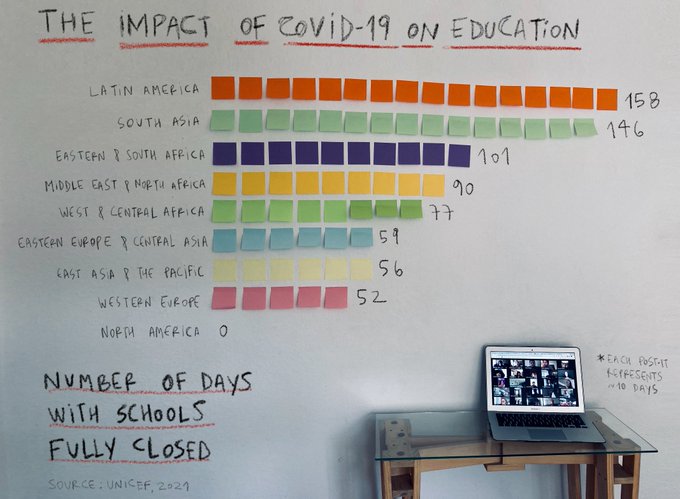 THE IMPACT OF COVID-19 ON EDUCATION
LATIN AMERICA 158
SOUTH ASIA 146
EASTERN & SOUTH AFRICA 101
MIDDLE EAST & NORTH AFRICA 90
WEST & CENTRAL AFRICA 77
EASTERN EUROPE & CENTRAL ASIA 59
EAST ASIA & THE PACIFIC 56
WESTERN EUROPE 52
NORTH AMERICA 0
*EACH POST-IT
REPRESENTS
~10 DAYS
NUMBER OF DAYS
WITH SCHOOLS
FULLY CLOSED
SOURCE: UNICEF, 2021